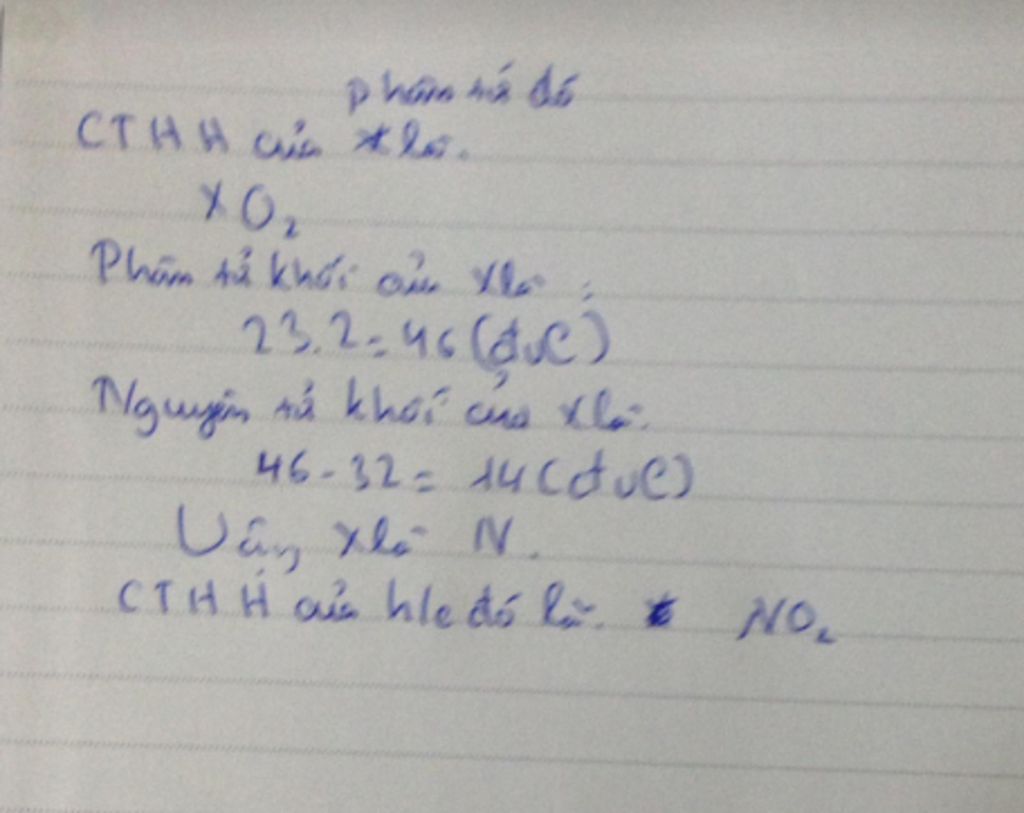 phân tử đó
CTHH của X là:
XO₂
Phân tử khối của X là :
23.2 = 46 (đvC)
Nguyên tử khối của X là:
46 - 32 = 14 (đvC)
Vậy X là N.
CTHH của h/c đó là: NO₂